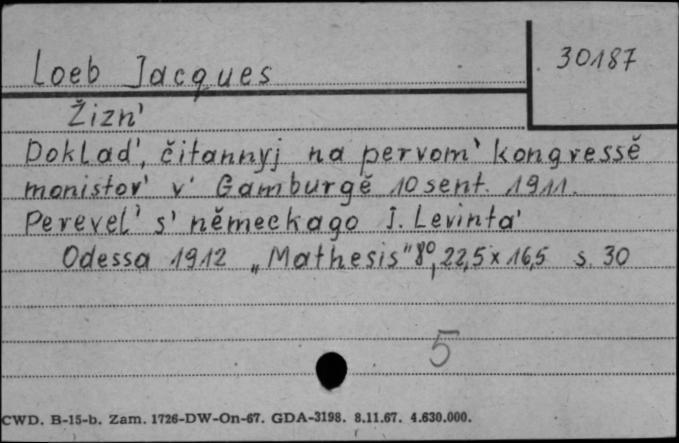 Loeb Jacques
30187
Žizn'
Doklad', čitannyj na pervom' kongressě
monistov' v' Gamburgě 10 sent. 1911.
Perevel' s' německago J. Levinta'
Odessa 1912 „Mathesis" 8°, 22,5 x 16,5 s. 30
5
CWD. B-15-b. Zam. 1726-DW-On-67. GDA-3198. 8.11.67. 4.630.000.